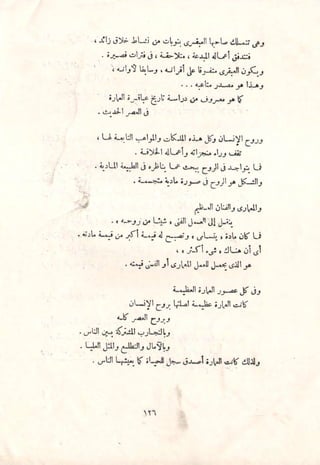 وهى تتمسك صاحبها العبقرى بنوبات من نشاط خلاق زائد ،
فتتدفق أعماله المبدعة ، متلاحقة ، فى فترات قصيرة .
ويكون العبقرى متفوقا على أقرانه ، وسابقا لأوانه ،
وهذا هو مصدر متاعبه . . .
كما هو معروف من دراسة تاريخ عباقرة العمارة
فى العصر الحديث .
وروح الإنسان وكل هذه الملكات والمواهب التابعة لها ،
تقف وراء منجزاته وأعماله الخلاقة .
فما يتواجد فى الروح يبحث عما يناظره فى الطبيعة المادية .
والشكل هو الروح فى صورة مادية متجسمة .
والمعمارى والفنان العظيم
ينقل إلى العمل الفنى ، شيئا من روحه ، .
فما كان مادة ، يتسامى ، وتصبح له قيمة أكبر من قيمة مادته .
أى أن هناك ، شىء ، أكثر ، ،
هو الذى يجعل للعمل المعمارى أو الفنى قيمته .
وفى كل عصور العمارة العظيمة
كانت العمارة عظيمة لصلتها بروح الإنسان
وبروح العصر كله
وبالتجارب المشتركة بين الناس .
وبالآمال والتطلع والمثل العليا .
ولذلك كانت العمارة أصدق سجل للحياة كما يعيشها الناس .
١٢٦